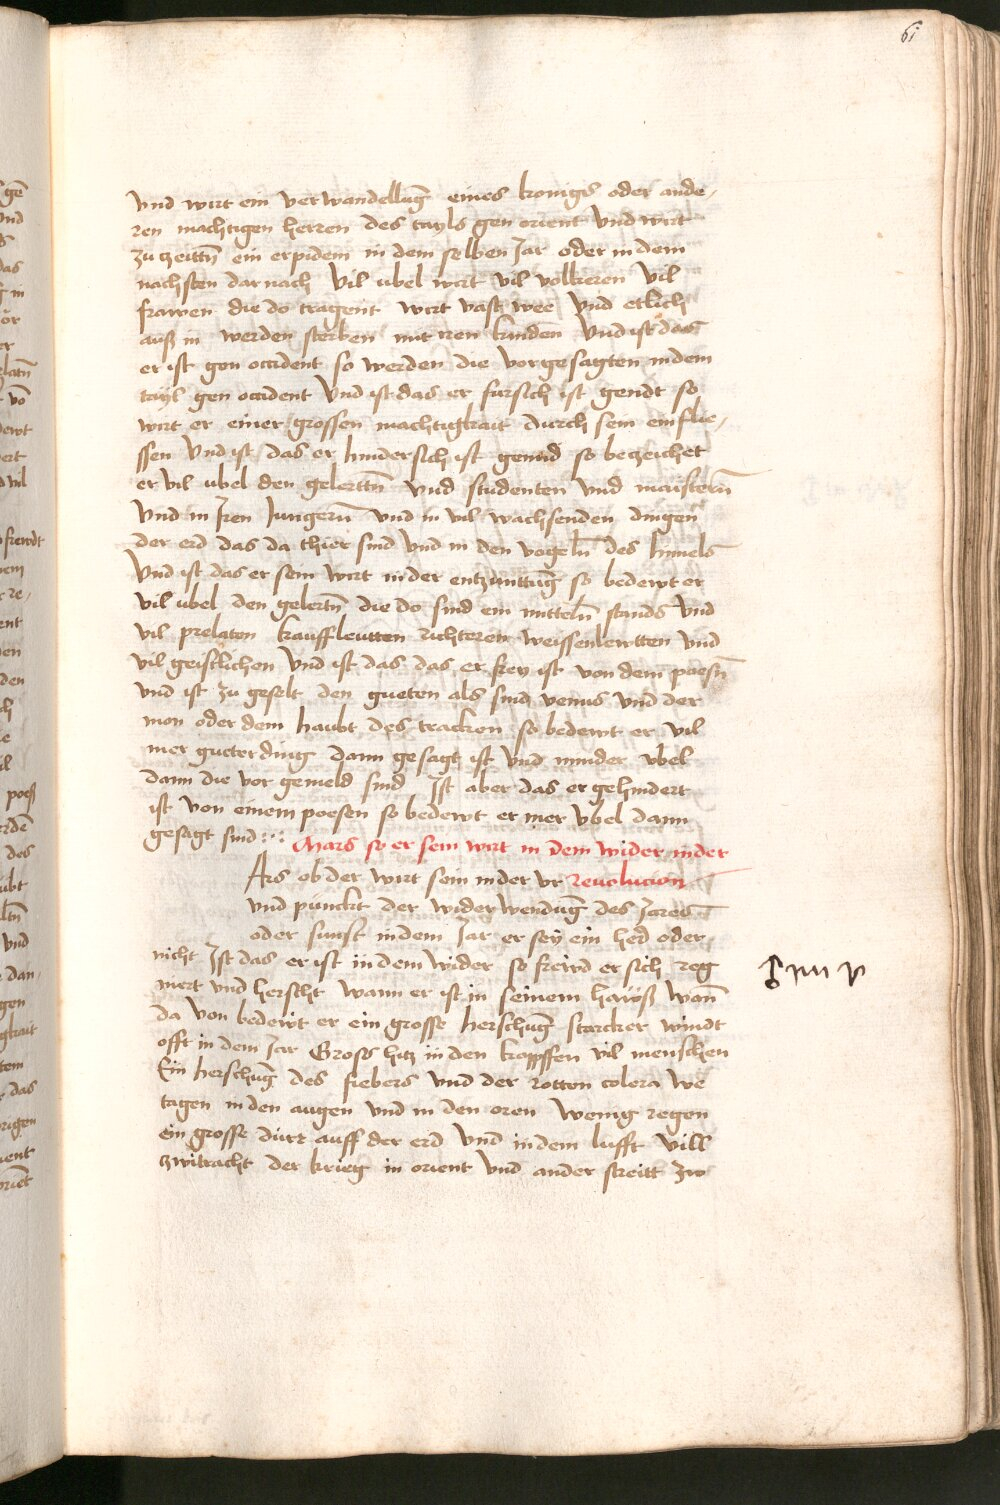 61
vnd wirt ein verwandellūg eines konigs oder ande,
ren machtigen herren des tayls gen orient vnd wirt
zu zeittn̄ ein erpidem in dem selben Jar oder in dem
nachsten dar nach Vil ubel wirt vil volkeren vil
frawen die do tragent wirt vast wee vnd etlich
auß in werden sterben mit iren kinden Vnd ist das
er ist gen occident so werden die vorgesagten in dem
tayl gen occident Vnd ist das er fursich ist gendt so
wirt er einer grossen machtigkait durch sein einflie,
ssen Vnd ist das er hindersich ist gennd so bezeichet
er vil ubel den gelerttn̄ vnd studenten vnd maistern̄
Vnd in Jren Jungern̄ vnd in vil wachsenden dingen
der erd das da thier sind vnd in den vogeln̄ des himels
Vnd ist das er sein wirt in der entzunttūg so bedewt er
vil ubel den gelertn̄ die do sind ein mitteln̄ stands vnd
vil prelaten kauffleutten richteren weissenlewtten vnd
vil geistlichen Vnd ist das das er frey ist von dem poesn̄
vnd ist zu geselt den gueten als sind venus vnd der
mon oder dem haubt des tracken so bedewt er vil
mer gueter ding dann gesagt ist vnd minder vbel
dann die vor gemeld sind Ist aber das er gehindert
ist von einem poesen so bedewt er mer vbel dann
gesagt sind
Mars so er sein wirt in dem wider in der
Ars ob der wirt sein in der vr revolucion
vnd punckt der widerwendūg des Jares
oder sunst in dem Jar er sey ein herd oder
nicht Ist das er ist in dem wider so frewd er sich reg
niert vnd herscht wann er ist in seinem hawß wan̄
da von bedewt er ein grosse herschūg starcker windt
offt in dem Jar Gross hitz in den kopffen vil menschen
Ein herschūg des fiebers vnd der rotten colera we
tagen in den augen vnd in den oren wenig regen
ein grosse dürr auff der erd vnd in dem lufft vill
zwitracht der krieg in orient vnd ander streitt zw